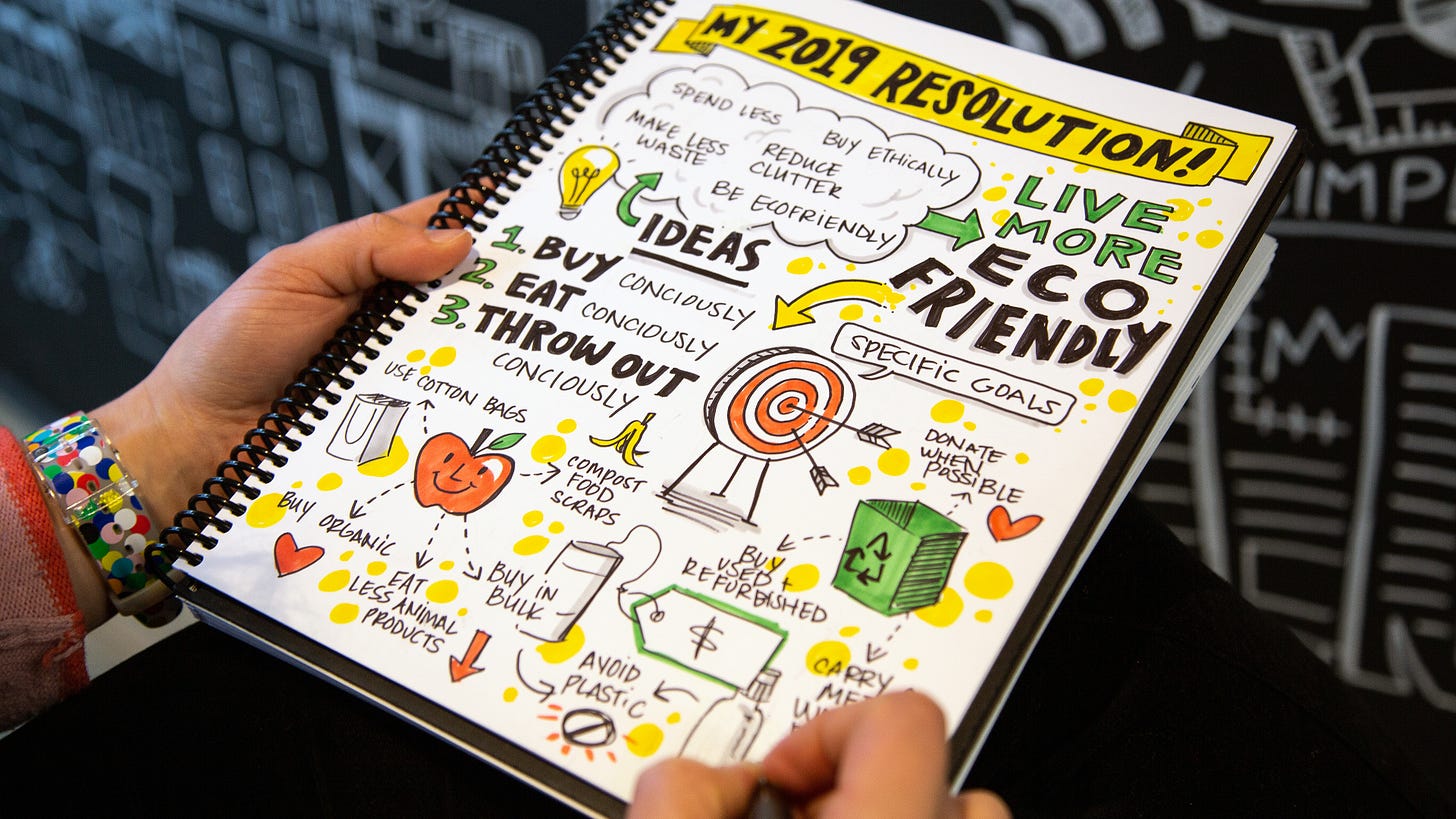 MY 2019 RESOLUTION!
SPEND LESS
BUY ETHICALLY
MAKE LESS
WASTE
REDUCE
CLUTTER
BE ECOFRIENDLY
LIVE
MORE
ECO
FRIENDLY
IDEAS
1. BUY CONCIOUSLY
2. EAT CONCIOUSLY
3. THROW OUT
CONCIOUSLY
SPECIFIC GOALS
USE COTTON BAGS
COMPOST
FOOD
SCRAPS
BUY ORGANIC
EAT
LESS ANIMAL
PRODUCTS
BUY IN
BULK
AVOID
PLASTIC
$
DONATE
WHEN
POSSIBLE
BUY
USED +
REFURBISHED
CARRY
IMP